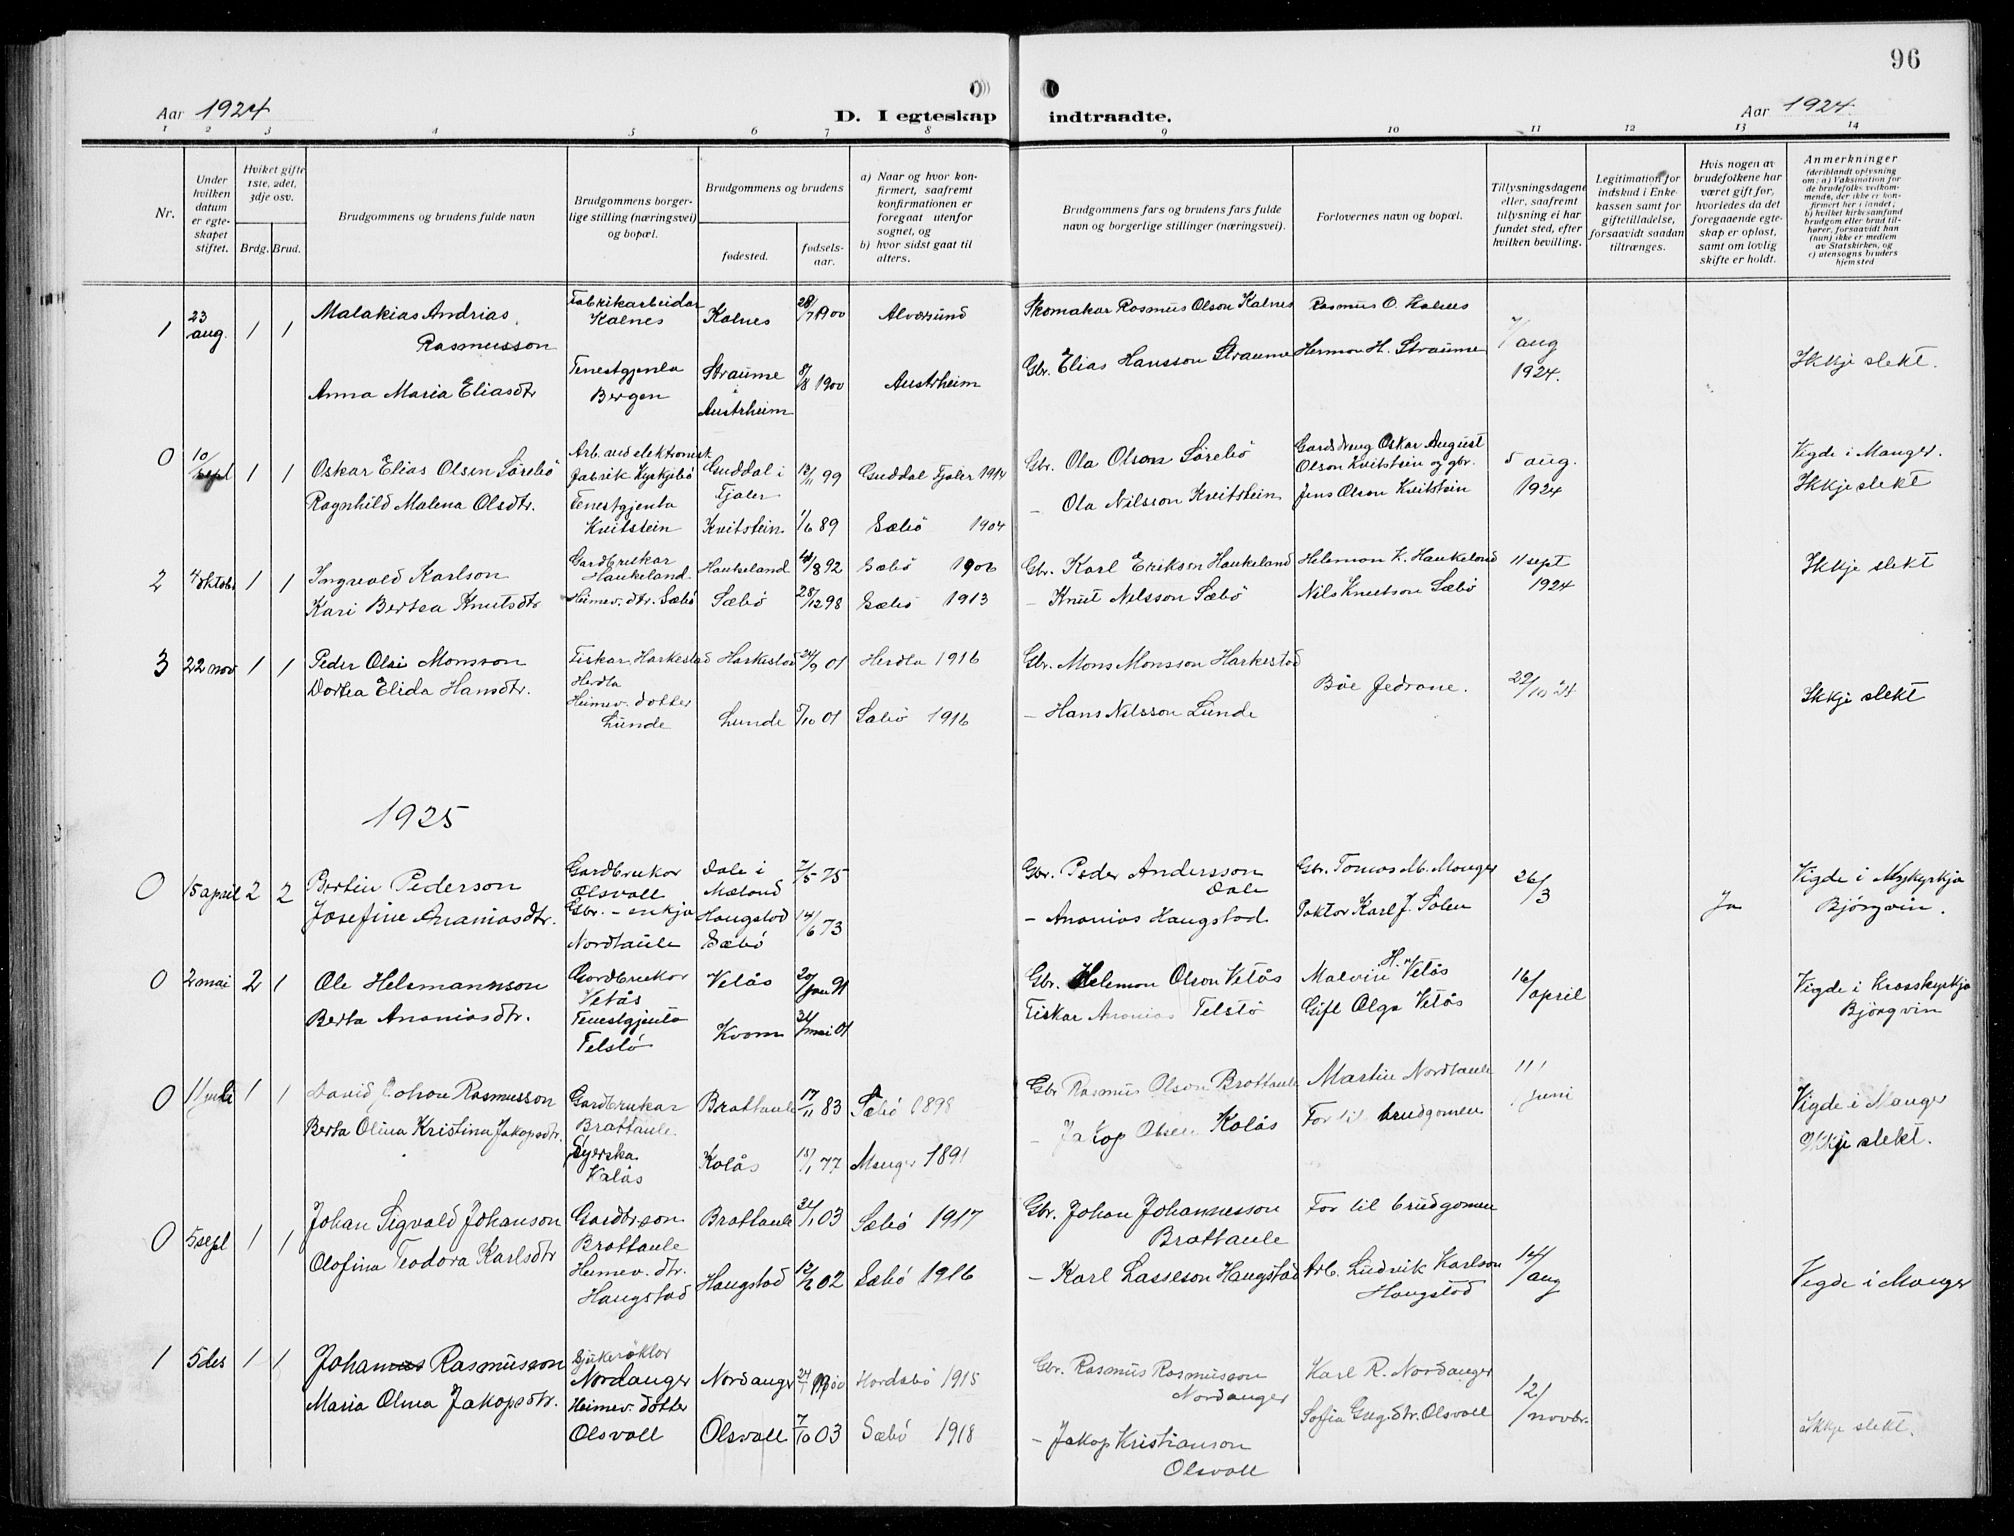 96
Aar 1924
D. I egteskap indtraadte.
Aar 1924.
1 2 3 4 5 6 7 8 9 10 11 12 13 14
Nr.
Under hvilken datum er egteskapet stiftet.
Hviket gifte 1ste, 2det, 3dje osv.
Brdg. Brud.
Brudgommens og brudens fulde navn
Brudgommens borgerlige stilling (næringsvei) og bopæl.
Brudgommens og brudens
fødested.
fødselsaar.
a) Naar og hvor konfirmert, saafremt konfirmationen er foregaat utenfor sognet, og
b) hvor sidst gaat til alters.
Brudgommens fars og brudens fars fulde navn og borgerlige stillinger (næringsvei).
Forlovernes navn og bopæl.
Tillysningsdagene eller, saafremt tillysning ei har fundet sted, efter hvilken bevilling.
Legitimation for indskud i Enkekassen samt for giftetilladelse, forsaavidt saadan tiltrænges.
Hvis nogen av brudefolkene har været gift før, hvorledes da det foregaaende egteskap er opløst, samt om lovlig skifte er holdt.
Anmerkninger
(deriblandt oplysning om: a) Vaksination for de brudefolks vedkommende, der ikke er konfirmert her i landet; b) hvilket kirkesamfund brudgom eller brud tilhører, forsaavidt han (hun) ikke er medlem av Statskirken, og c) utensogns bruders hjemsted
1 23 aug. 1 1 Malakias Andrias Rasmusson Fabrikarbeidar Kalnes Kalnes 28/7 1900 Alversund Skomakar Rasmus Olson Kalnes Rasmus O. Kalnes 7/ aug 1924. Ikkje slekt.
Anna Maria Eliasdtr Tenestgjenta Bergen Straume i Austrheim 8/8 1900 Austrheim Gbr. Elias Hansson Straume Herman H. Straume
0 10/sept 1 1 Oskar Elias Olsen Sørebø Arb. ved elektronisk fabrik Kyrkjebø Guddal i Fjaler 13/11 99 Guddal Fjaler 1914 Gbr. Ola Olson Sørebø Gardsdreng Oskar August Olson Kvitstein og gbr. 5 aug. 1924 Vigde i Manger.
Ragnhild Malena Olsdtr. Tenestgjenta Kvitstein Kvitstein 1/6 89 Sæbö 1904 – Ola Nilsson Kvitstein Jens Olson Kvitstein Ikkje slekt
2 4 oktob. 1 1 Ingvald Karlson Gardbrukar Haukeland Haukeland /8 92 Sæbö 1906 Gbr. Karl Erikson Haukeland Helemon K. Haukeland 11 sept 1924 Ikkje slekt
Kari Bertea Knutsdtr Heimev. dtr. Sæbö Sæbö 28/12 98 Sæbö 1913 – Knut Nilsson Sæbö Nils Knutson Sæbö
3 22 nov 1 1 Peder Olai Monsson Fiskar. Harkestad Herdla Harkestad 24/9 01 Herdla 1916 Gbr. Mons Monsson Harkestad Böe Jedrane. 22/10 24 Ikkje slekt
Dortea Elida Hansdtr. Heimev. dotter Lunde Lunde 5/10 01 Sæbö 1916 – Hans Nilsson Lunde
1925
0 15 april 2 2 Bertin Pederson Gardbrukar Olsvoll Dale i Mæland 7/5 75 Gbr. Peder Andersson Dale Gbr. Tomas M. Manger 26/3 Ja Vigde i Nykyrkja Björgvin.
Josefine Ananiasdtr. Gbr.-enkja Nordtaule Haugstad Sæbö 14/6 73 – Ananias Haugstad. Doktor Karl J. Solen
0 2 mai 2 1 Ole Helemannson Gardbrukar Vetås Vetås 20/jan 91 Gbr. Helemon Olson Vetås Malvin H. Vetås 16/april Vigde i Krosskyrkja Björgvin
Berta Ananiasdtr. Tenestgjenta Telstö Kvam 31/mai 01 Fiskar Ananias Telstö Gift Olga Vetås
0 11 juli 1 1 David Johan Rasmusson Gardbrukar Brattaule Brattaule 17/11 83 Sæbö 1898 Gbr Rasmus Olson Brattaule Martin Nordtaule 11/ juni Vigde i Manger
Berta Olina Kristina Jakopsdtr. Syerska Kalås Kolås 15/1 77 Manger 1891 – Jakop Olsen Kolås Far til brudgomen Ikkje slekt.
0 5 sept 1 1 Johan Sigvald Johanson Gardbr.son Brattaule Brattaule 21/1 03 Sæbö 1917 Gbr. Johan Johannesson Brattaule Far til brudgomen 14/aug Vigde i Manger
Olofina Teodora Karlsdtr Heimev. dtr. Haugstad Haugstad 12/ 02 Sæbö 1916 – Karl Lasseson Haugstad Arb. Ludvik Karlson Haugstad
1 5 des 1 1 Johannes Rasmusson Sjukerøktar Nordanger Nordanger 24/1 1900 Hordabö 1915 Gbr. Rasmus Rasmusson Nordanger Karl R. Nordanger 12/novbr. Ikkje slekt.
Maria Olina Jakopsdtr. Heimev. dotter Olsvoll Olsvoll 7/10 03 Sæbö 1918 – Jakop Kristianson Olsvoll Sofia Gug.dtr. Olsvoll